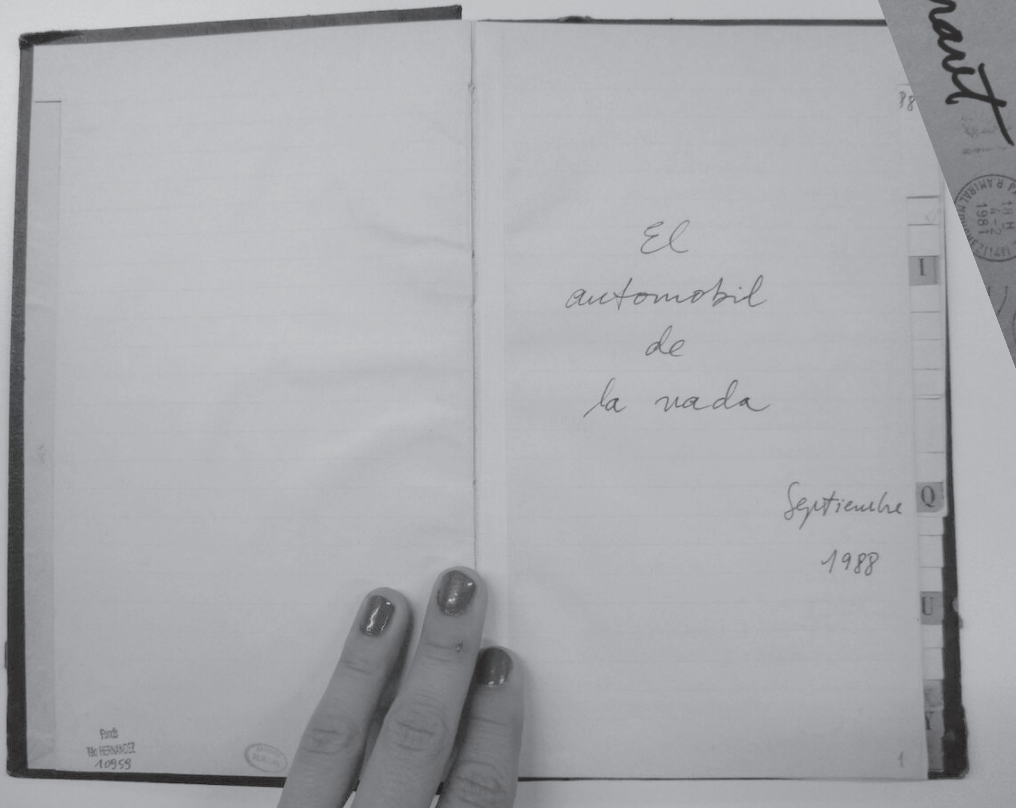 El
automobil
de
la nada
Septiembre
1988
1
I
Q
U
Y
Fonds
HERNANDEZ
10959
18 H
4-2
1981